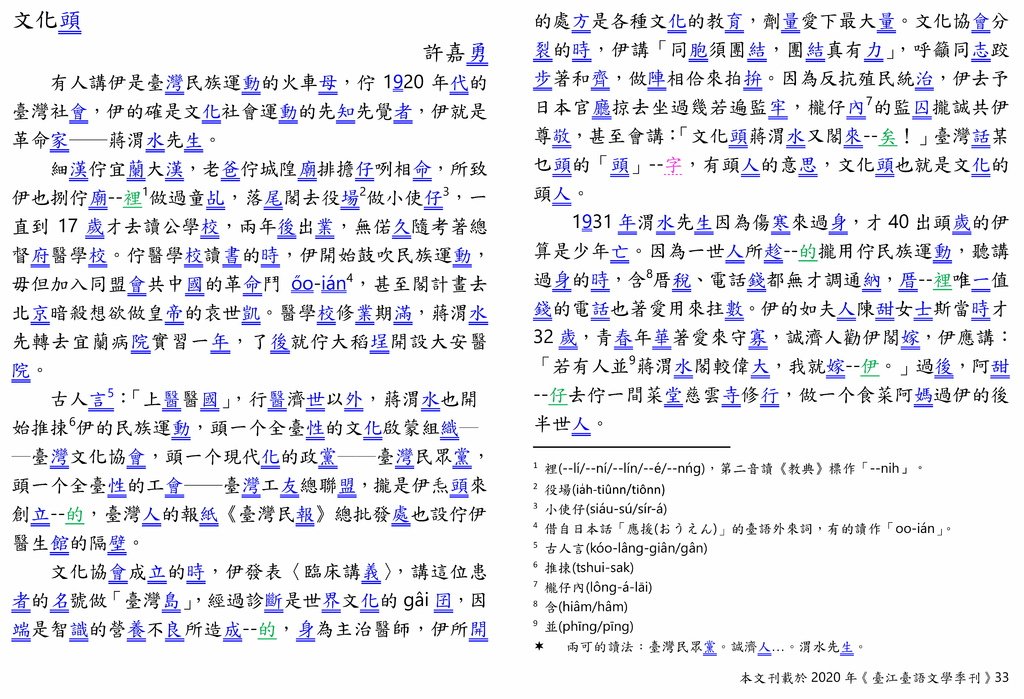 文化頭
許嘉勇
有人講伊是臺灣民族運動的火車母，佇 1920 年代的
臺灣社會，伊的確是文化社會運動的先知先覺者，伊就是
革命家──蔣渭水先生。
細漢佇宜蘭大漢，老爸佇城隍廟排擔仔咧相命，所致
伊也捌佇廟--裡1做過童乩，落尾閣去役場2做小使仔3，一
直到 17 歲才去讀公學校，兩年後出業，無偌久隨考著總
督府醫學校。佇醫學校讀書的時，伊開始鼓吹民族運動，
毋但加入同盟會共中國的革命鬥 óo-ián4，甚至閣計畫去
北京暗殺想欲做皇帝的袁世凱。醫學校修業期滿，蔣渭水
先轉去宜蘭病院實習一年，了後就佇大稻埕開設大安醫
院。
古人言5：「上醫醫國」，行醫濟世以外，蔣渭水也開
始推捒6伊的民族運動，頭一个全臺性的文化啟蒙組織─
─臺灣文化協會，頭一个現代化的政黨──臺灣民眾黨，
頭一个全臺性的工會──臺灣工友總聯盟，攏是伊𤆬頭來
創立--的，臺灣人的報紙《臺灣民報》總批發處也設佇伊
醫生館的隔壁。
文化協會成立的時，伊發表〈臨床講義〉，講這位患
者的名號做「臺灣島」，經過診斷是世界文化的 gâi 囝，因
端是智識的營養不良所造成--的，身為主治醫師，伊所開
的處方是各種文化的教育，劑量愛下最大量。文化協會分
裂的時，伊講「同胞須團結，團結真有力」，呼籲同志跤
步著和齊，做陣相佮來拍拚。因為反抗殖民統治，伊去予
日本官廳掠去坐過幾若遍監牢，櫳仔內7的監囚攏誠共伊
尊敬，甚至會講：「文化頭蔣渭水又閣來--矣！」臺灣話某
乜頭的「頭」--字，有頭人的意思，文化頭也就是文化的
頭人。
1931 年渭水先生因為傷寒來過身，才 40 出頭歲的伊
算是少年亡。因為一世人所趁--的攏用佇民族運動，聽講
過身的時，含8厝稅、電話錢都無才調通納，厝--裡唯一值
錢的電話也著愛用來拄數。伊的如夫人陳甜女士斯當時才
32 歲，青春年華著愛來守寡，誠濟人勸伊閣嫁，伊應講：
「若有人並9蔣渭水閣較偉大，我就嫁--伊。」過後，阿甜
--仔去佇一間菜堂慈雲寺修行，做一个食菜阿媽過伊的後
半世人。
1 裡(--lí/--ní/--lín/--é/--nńg)，第二音讀《教典》標作「--nih」。
2 役場(ia̍h-tiûnn/tiônn)
3 小使仔(siáu-sú/sír-á)
4 借自日本話「應援(おうえん)」的臺語外來詞，有的讀作「oo-ián」。
5 古人言(kóo-lâng-giân/gân)
6 推捒(tshui-sak)
7 櫳仔內(lông-á-lāi)
8 含(hiâm/hâm)
9 並(phīng/pīng)
★ 兩可的讀法：臺灣民眾黨。誠濟人…。渭水先生。
本文刊載於 2020 年《臺江臺語文學季刊》33